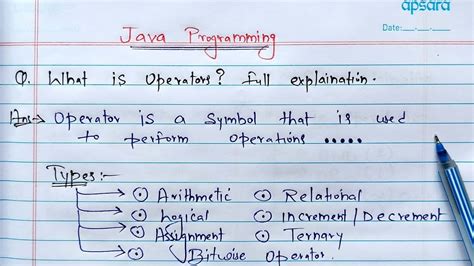 apsara
Date:
Java Programming
Q. What is Operators? full explaination.
Ans:→ Operator is a Symbol that is used
to perform operations .....
Types:-
→ Arithmetic
→ Logical
→ Assignment
→ Bitwise Operator.
Relational
Increment/Decrement
Ternary